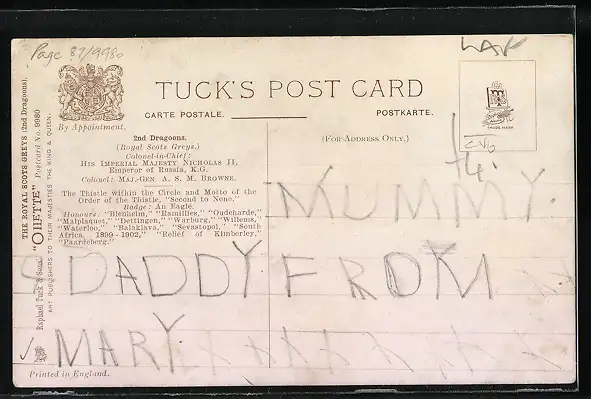 Page 87/9980
WAR
TUCK'S POST CARD
CARTE POSTALE.
POSTKARTE.
By Appointment.
(FOR ADDRESS ONLY.)
TRADE MARK
2nd Dragoons.
(Royal Scots Greys.)
Colonel-in-Chief:
HIS IMPERIAL MAJESTY NICHOLAS II,
Emperor of Russia, K.G.
Colonel: MAJ.-GEN. A. S. M. BROWNE.
The Thistle within the Circle and Motto of the
Order of the Thistle, "Second to None."
Badge: An Eagle.
Honours: "Blenheim," "Ramillies," "Oudenarde,"
"Malplaquet," "Dettingen," "Warburg," "Willems,"
"Waterloo," "Balaklava," "Sevastopol," "South
Africa, 1899-1902," "Relief of Kimberley,"
"Paardeberg."
THE ROYAL SCOTS GREYS (2nd Dragoons).
"OILETTE" Postcard No. 9980
Raphael Tuck & Sons'
ART PUBLISHERS TO THEIR MAJESTIES THE KING & QUEEN.
MUMMY.
DADDY FROM
MARY.
Printed in England.